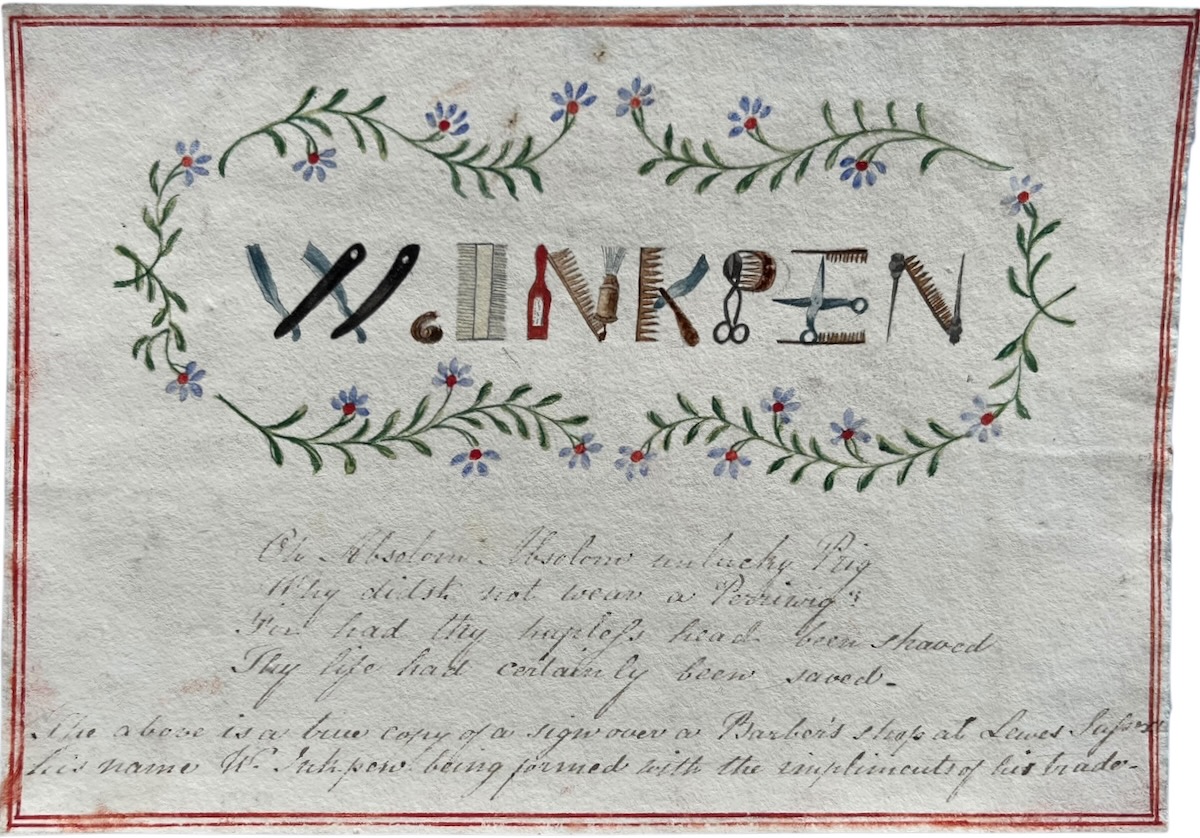 W. INKPEN
Oh Absolom Absolom unlucky Prig
Why didst not wear a Perriwig?
For had thy hapleſs head been shaved
Thy life had certainly been saved-
The above is a true copy of a sign over a Barber's shop at Lewes Suſsex
his name W. Inkpen being formed with the impliments of his trade-